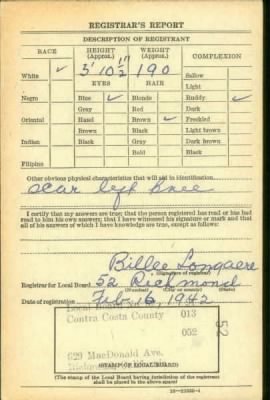 REGISTRAR'S REPORT
DESCRIPTION OF REGISTRANT
RACE HEIGHT (Approx.) WEIGHT (Approx.) COMPLEXION
White ✓ 5' 10 1/2" 190 Sallow
EYES HAIR Light
Negro Blue ✓ Blonde Ruddy ✓
Gray Red Dark
Oriental Hazel Brown ✓ Freckled
Brown Black Light brown
Indian Black Gray Dark brown
Bald Black
Filipino
Other obvious physical characteristics that will aid in identification
scar left knee
I certify that my answers are true; that the person registered has read or has had
read to him his own answers; that I have witnessed his signature or mark and that
all of his answers of which I have knowledge are true, except as follows:
Billee
(Signature of registrar)
Registrar for Local Board 52 Richmond
(Number) (City or county) (State)
Date of registration Feb 16, 1942
Contra Costa County 013
052
629 MacDonald Ave.
52
(STAMP OF LOCAL BOARD)
(The stamp of the Local Board having jurisdiction of the registrant
shall be placed in the above space)